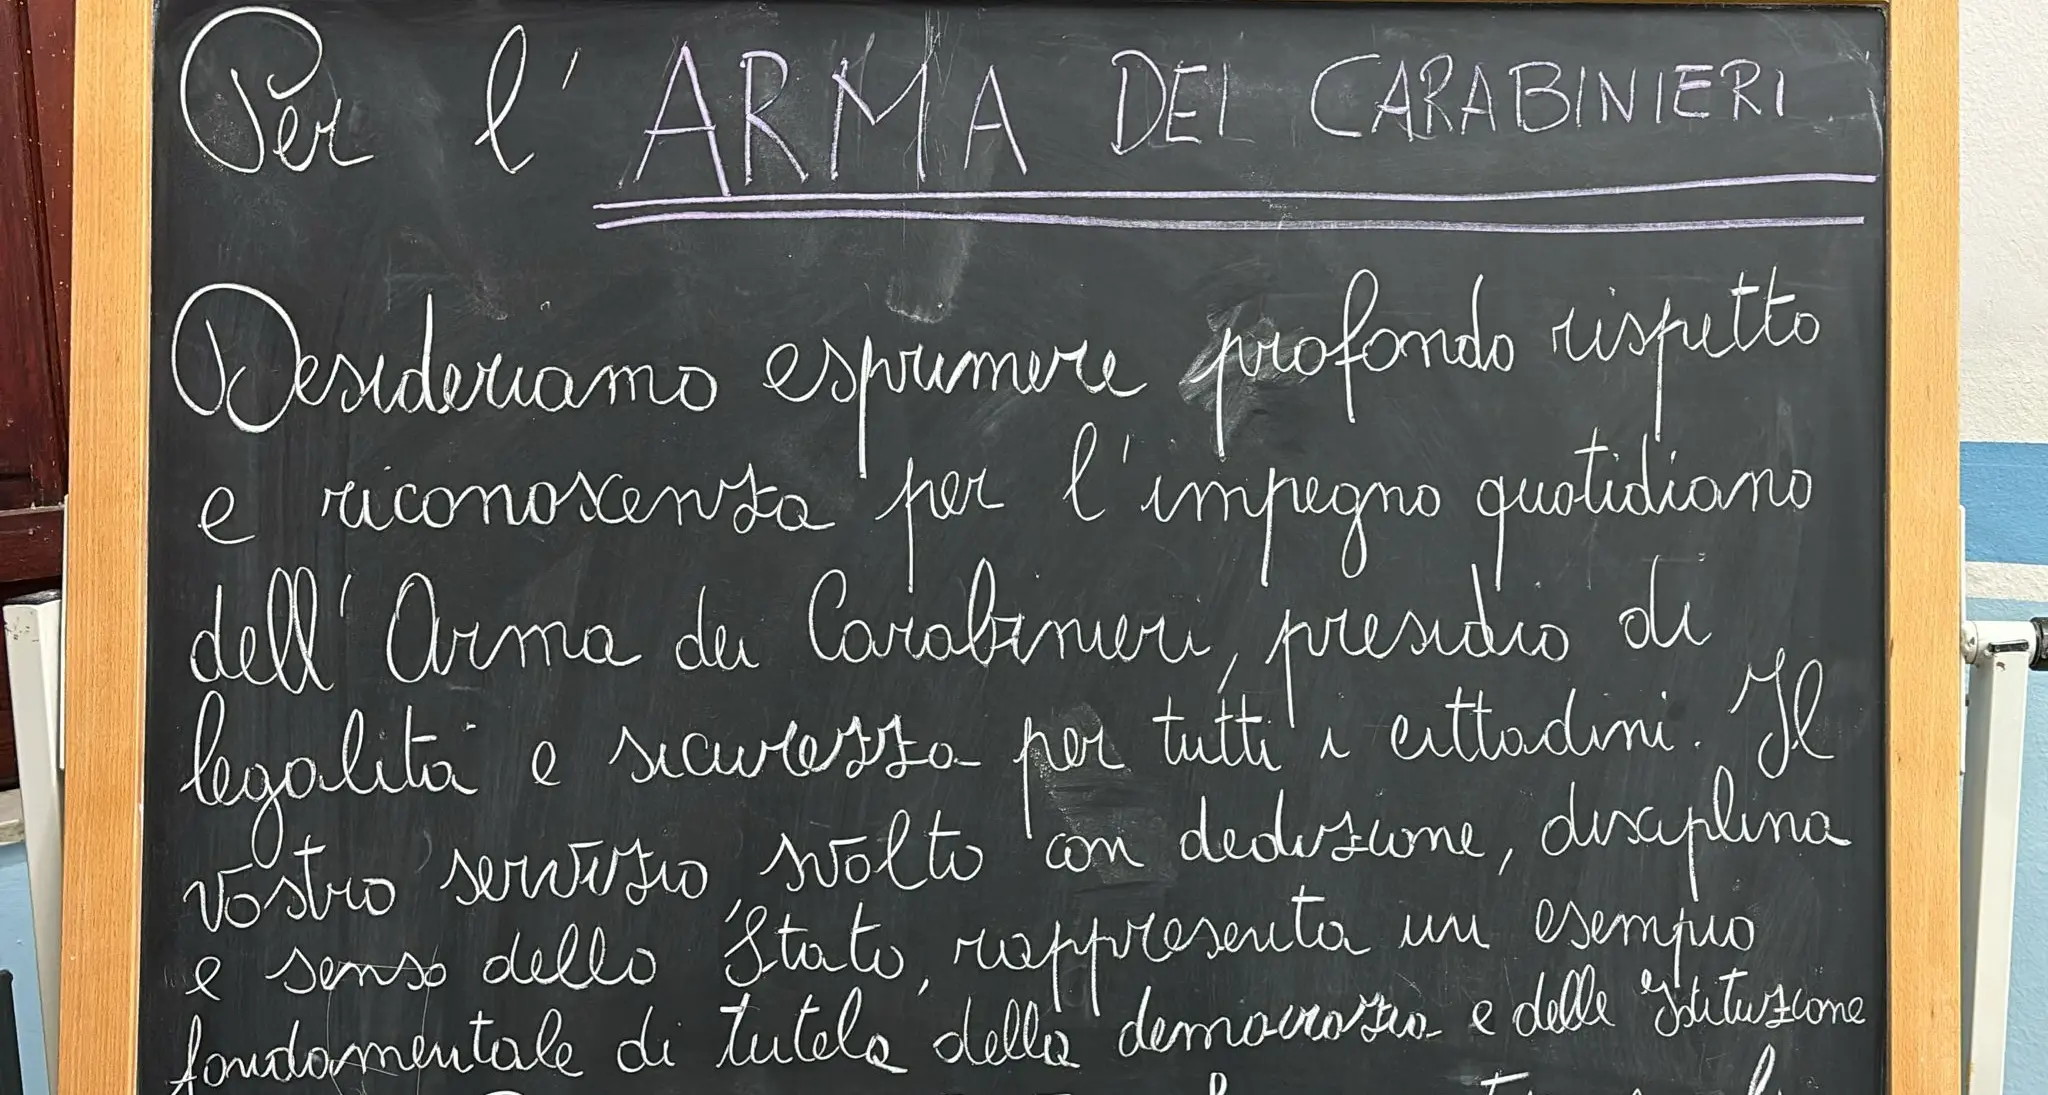 Per l'ARMA DEI CARABINIERI
Desideriamo esprimere profondo rispetto
e riconoscenza per l'impegno quotidiano
dell'Arma dei Carabinieri, presidio di
legalità e sicurezza per tutti i cittadini. Il
vostro servizio, svolto con dedizione, disciplina
e senso dello Stato, rappresenta un esempio
fondamentale di tutela della democrazia e delle Istituzione